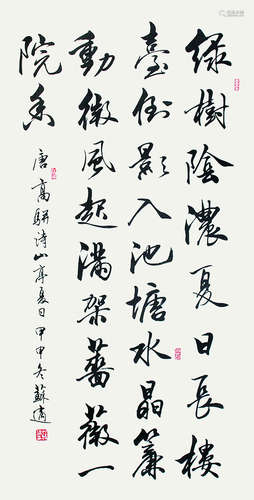 绿樹陰濃夏日長樓
臺倒影入池塘水晶簾
動微風起滿架薔薇一
院香
唐高駢诗山亭夏日甲申冬蘇適